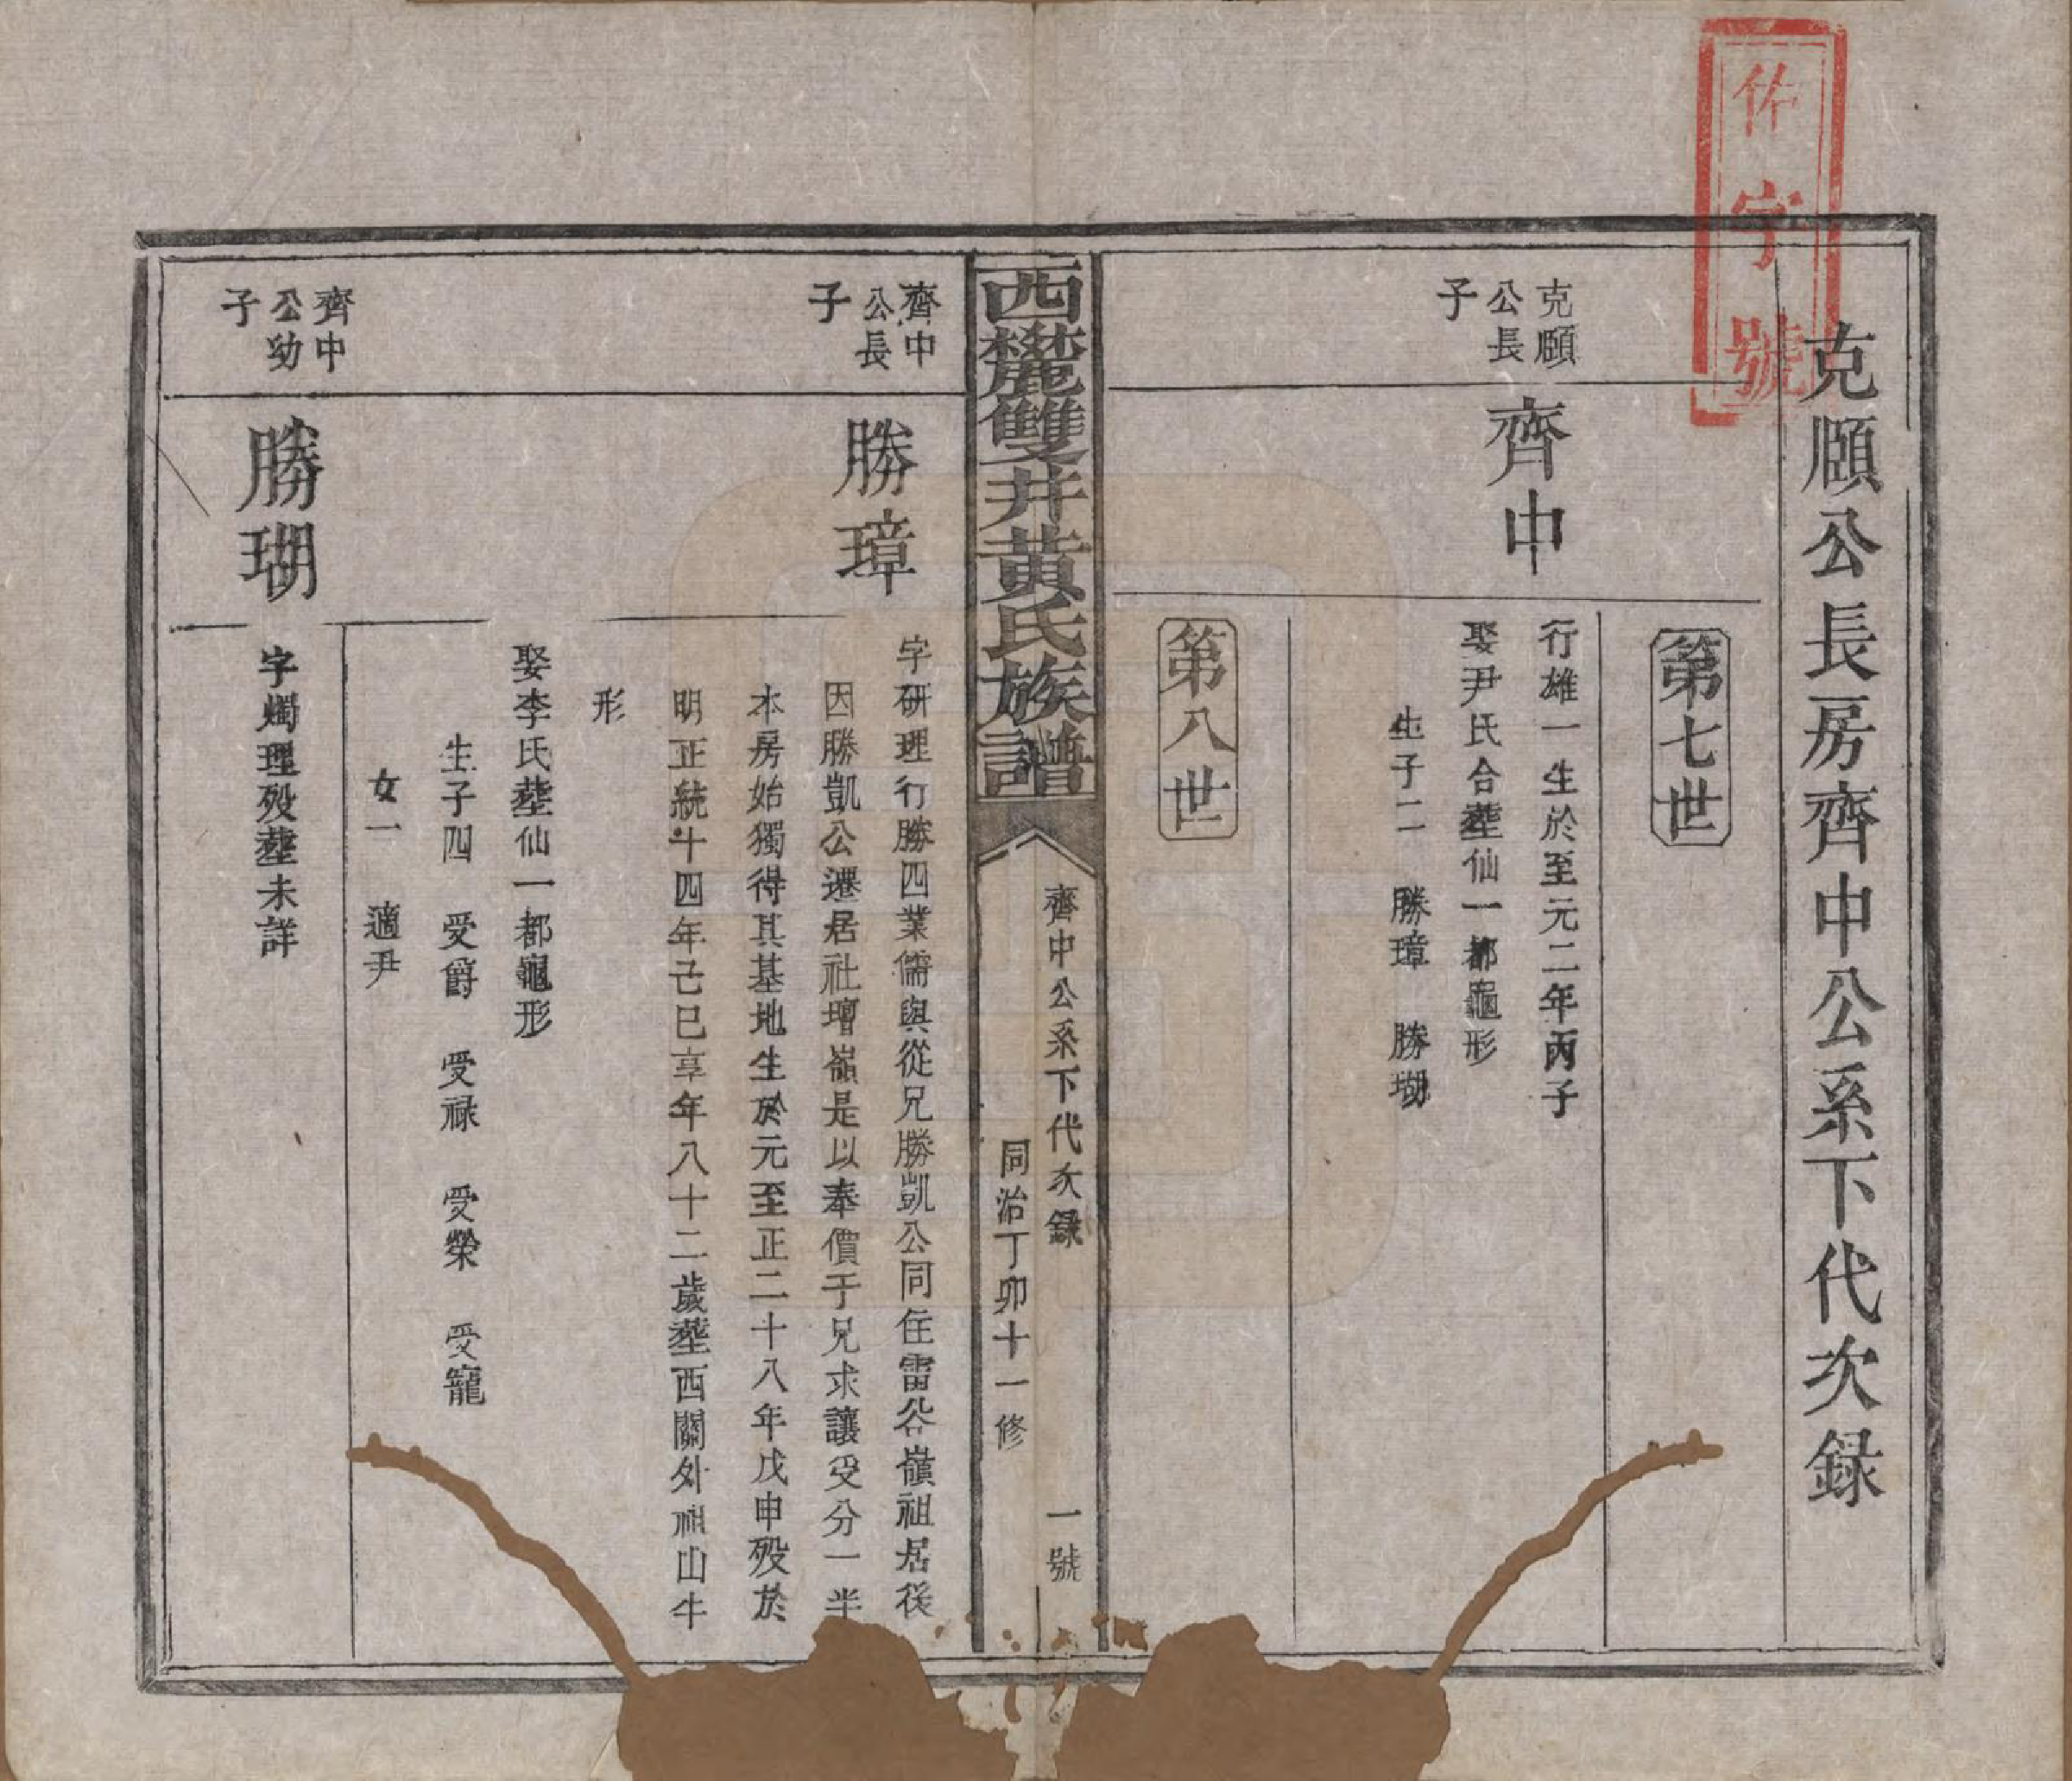 佐字號
克頤公長房齊中公系下代次録
第七世
克頤
公長
子
齊中
行雄一生於至元二年丙子
娶尹氏合塟仙一都龜形
生子二 勝璋 勝瑚
第八世
西麓雙井黃氏族譜
齊中公系下代次録 一號
同治丁卯十一修
齊中
公長
子
勝璋
字研理行勝四業儒與從兄勝凱公同住雷公嶺祖居後
因勝凱公遷居社壇嶺是以奉價于兄求讓受分一半
本房始獨得其基地生於元至正二十八年戊申殁於
明正統十四年己巳享年八十二歲塟西關外祖山牛
形
娶李氏塟仙一都龜形
生子四 受爵 受禄 受榮 受寵
女一 適尹
齊中
公幼
子
勝瑚
字燭理殁塟未詳